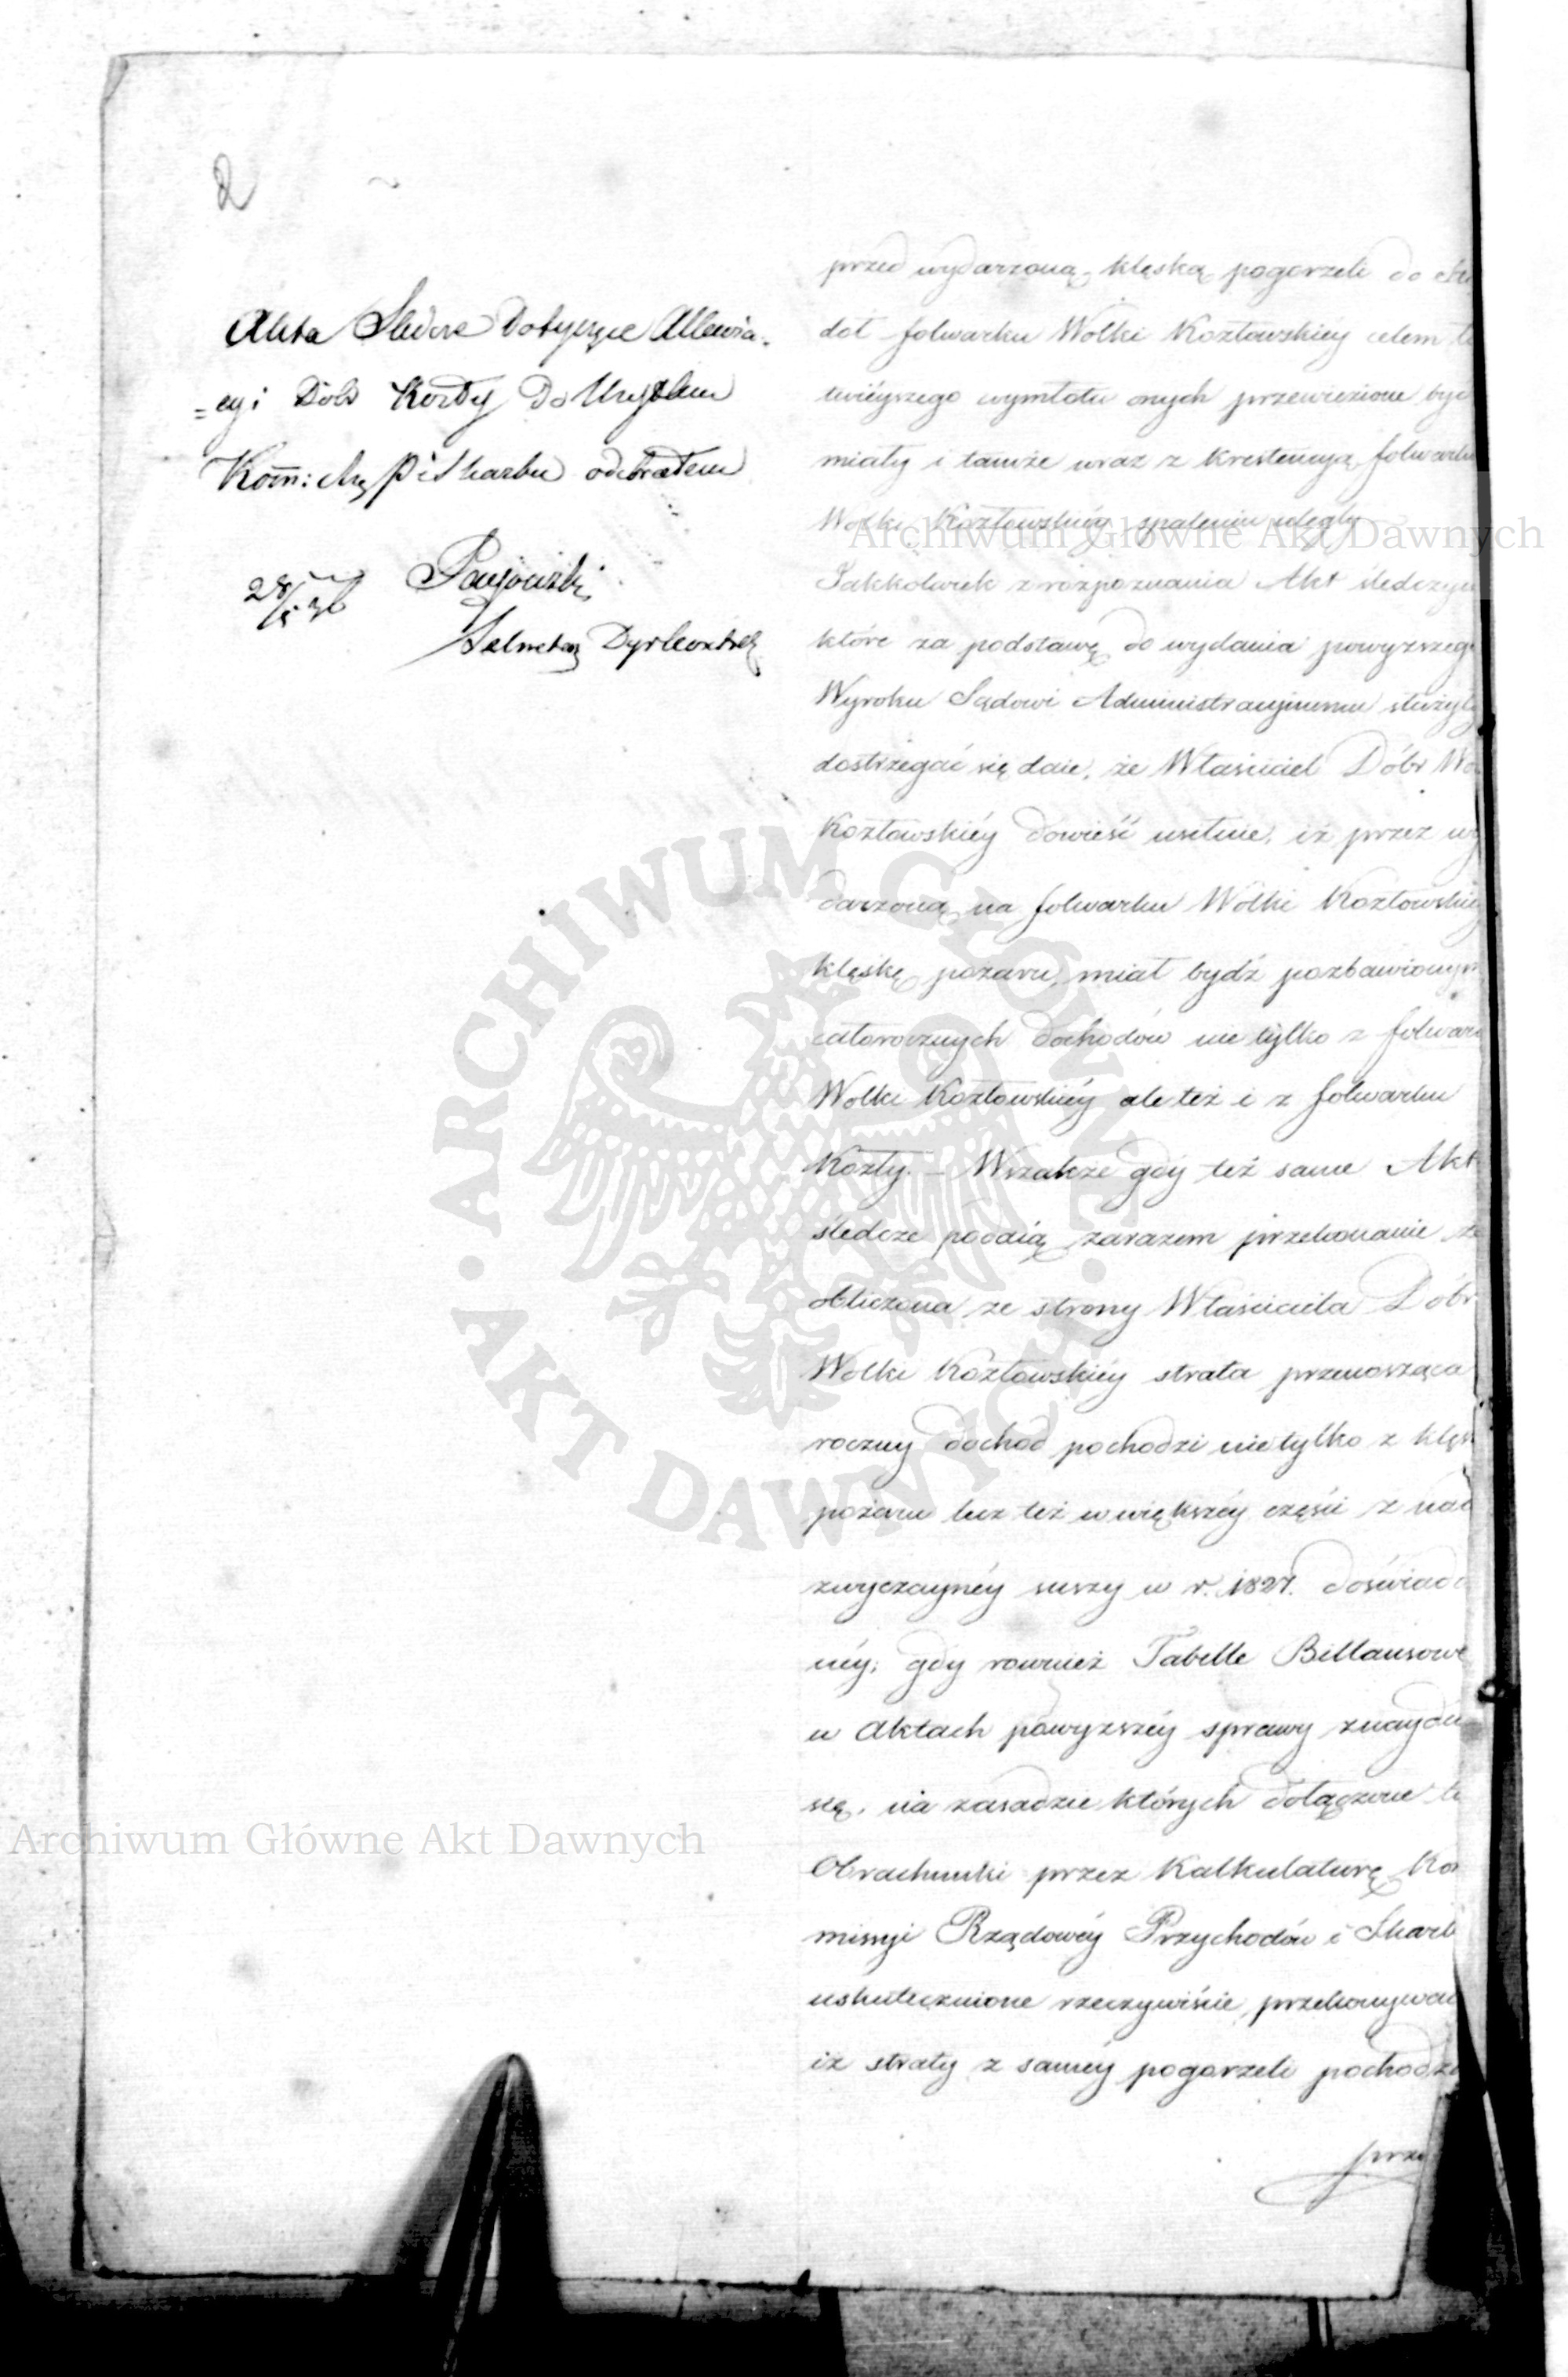 2
Akta Sledcze Dotyczące Allewia-
=cyi Dóbr Kozły do Użytku
Kom: Rz P i Skarbu odebrałem
28/5 36
Sekretarz Dyrekcyi
przed wydarzoną klęską pogorzeli do sto
dół folwarku Wolki Kozłowskiey celem ła
twiéyszego wymłotu onych przewiezione być
miały i tamże wraz z krestencyą folwarku
Wolki Kozłowskiéy spaleniu uległy
Jakkolwiek z rozpoznania Akt śledczych
które za podstawę do wydania powyższego
Wyroku Sądowi Administracyjnemu służyły
dostrzegać się daie, że Właściciel Dóbr Wol
Kozłowskiéy dowieść usilnie, iż przez wy
darzoną na folwarku Wolki Kozłowskiéy
klęskę pożaru, miał bydź pozbawionym
całorocznych dochodów nie tylko z folwar
Wolki Kozłowskiéy ale też i z folwarku
Kozły. – Wszakże gdy też same Akt
śledcze podaią zarazem przekonanie że
obliczona ze strony Właściciela Dóbr
Wolki Kozłowskiéy strata przenosząca
roczny dochod pochodzi nie tylko z klęs
pożaru lecz też w większéy części z nad
zwyczaynéy suszy w r. 1827. doświadc
néy; gdy rownież Tabelle Billansowe
w Aktach powyzszéy sprawy znaydu
się, na zasadzie których dołączone tu
Obrachunki przez Kalkulaturę Ko
missyi Rządowéy Przychodów i Skarb
uskutecznione rzeczywiście, przekonywaią
iż straty z saméy pogorzeli pochodzą
prze
Archiwum Główne Akt Dawnych
Archiwum Główne Akt Dawnych
ARCHIWUM GŁÓWNE
• AKT DAWNYCH •